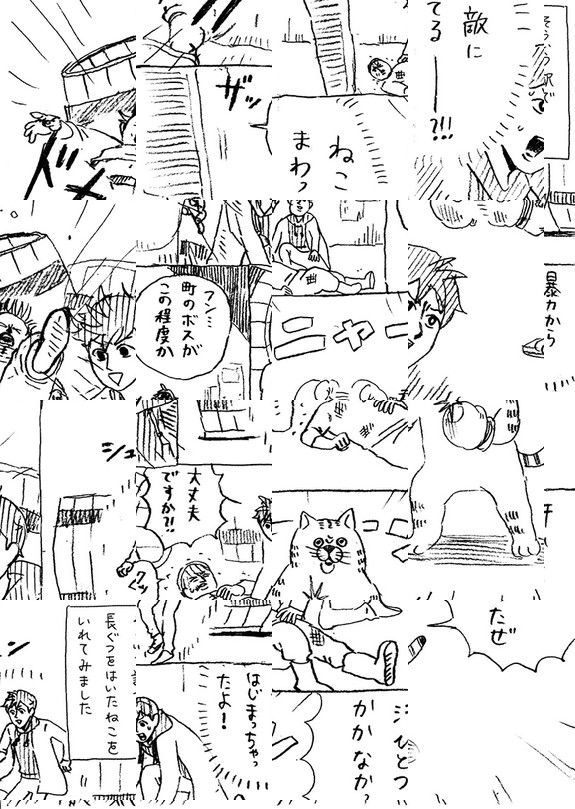 そういう訳で
敵に
てる――?!!!
ザッ
ねこ
まわっ
ドメ
暴力から
フン…
町のボスが
この程度か
ニャー
大丈夫
ですか?!
たぜ
長ぐつをはいたねこを
いれてみました
はじまっちゃっ
たよ!
ひとつ
かかなか